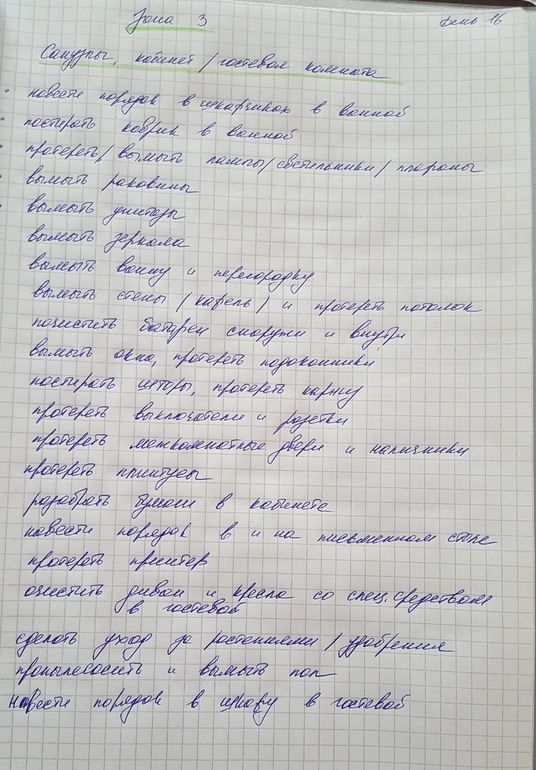 Зона 3 день 16
Санузлы, кабинет / гостевая комната
навести порядок в шкафчиках в ванной
постирать коврик в ванной
протереть / вымыть лампы / светильники / плафоны
вымыть раковины
вымыть унитазы
вымыть зеркала
вымыть ванну и перегородку
вымыть стены (кафель) и протереть потолок
почистить батареи снаружи и внутри
вымыть окна, протереть подоконники
постирать шторы, протереть карниз
протереть выключатели и розетки
протереть межкомнатные двери и наличники
протереть плинтусы
разобрать бумаги в кабинете
навести порядок в и на письменном столе
протереть принтер
очистить диван и кресла со спец. средством
в гостевой
сделать уход за растениями / удобрения
пропылесосить и вымыть пол
навести порядок в шкафу в гостевой